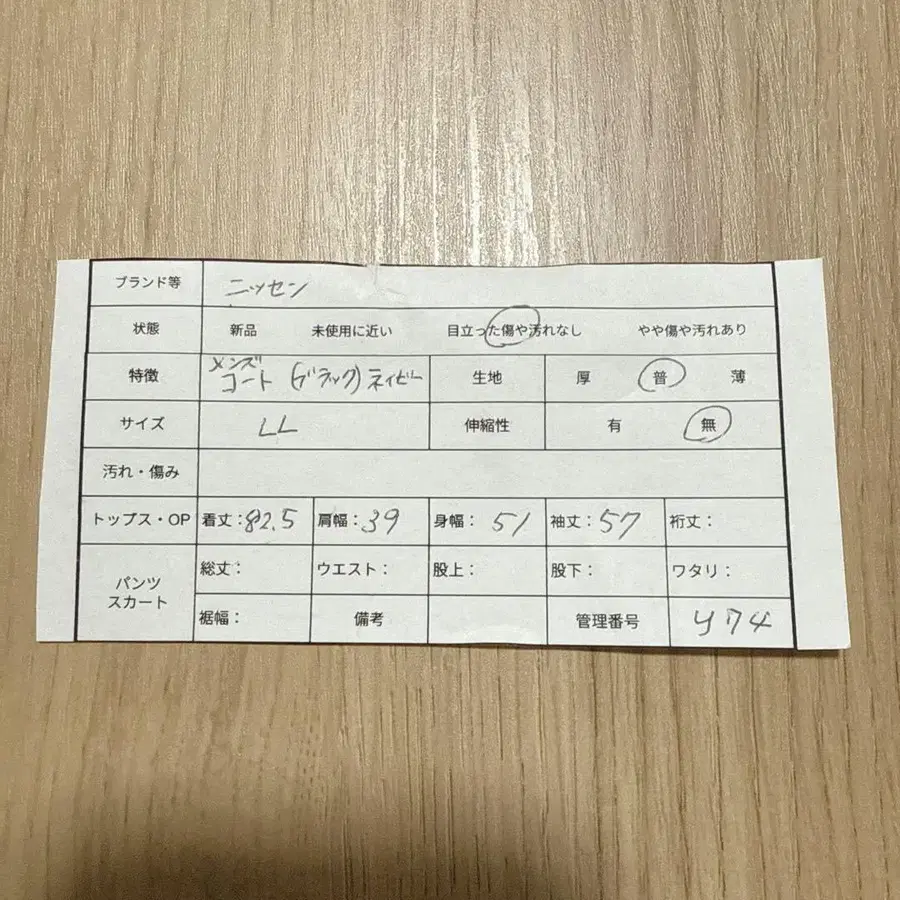 ブランド等 ニッセン
状態 新品 未使用に近い 目立った傷や汚れなし やや傷や汚れあり
特徴 メンズ コート (ブラック) ネイビー 生地 厚 普 薄
サイズ LL 伸縮性 有 無
汚れ・傷み
トップス・OP 着丈:82.5 肩幅:39 身幅:51 袖丈:57 裄丈:
パンツ スカート 総丈: ウエスト: 股上: 股下: ワタリ:
裾幅: 備考 管理番号 y74